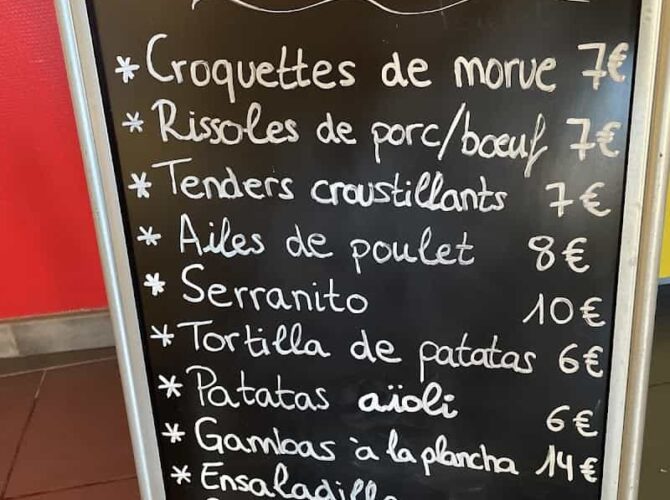 * Croquettes de morue 7€
* Rissoles de porc/bœuf 7€
* Tenders croustillants 7€
* Ailes de poulet 8€
* Serranito 10€
* Tortilla de patatas 6€
* Patatas aïoli 6€
* Gambas à la plancha 14€
* Ensaladilla